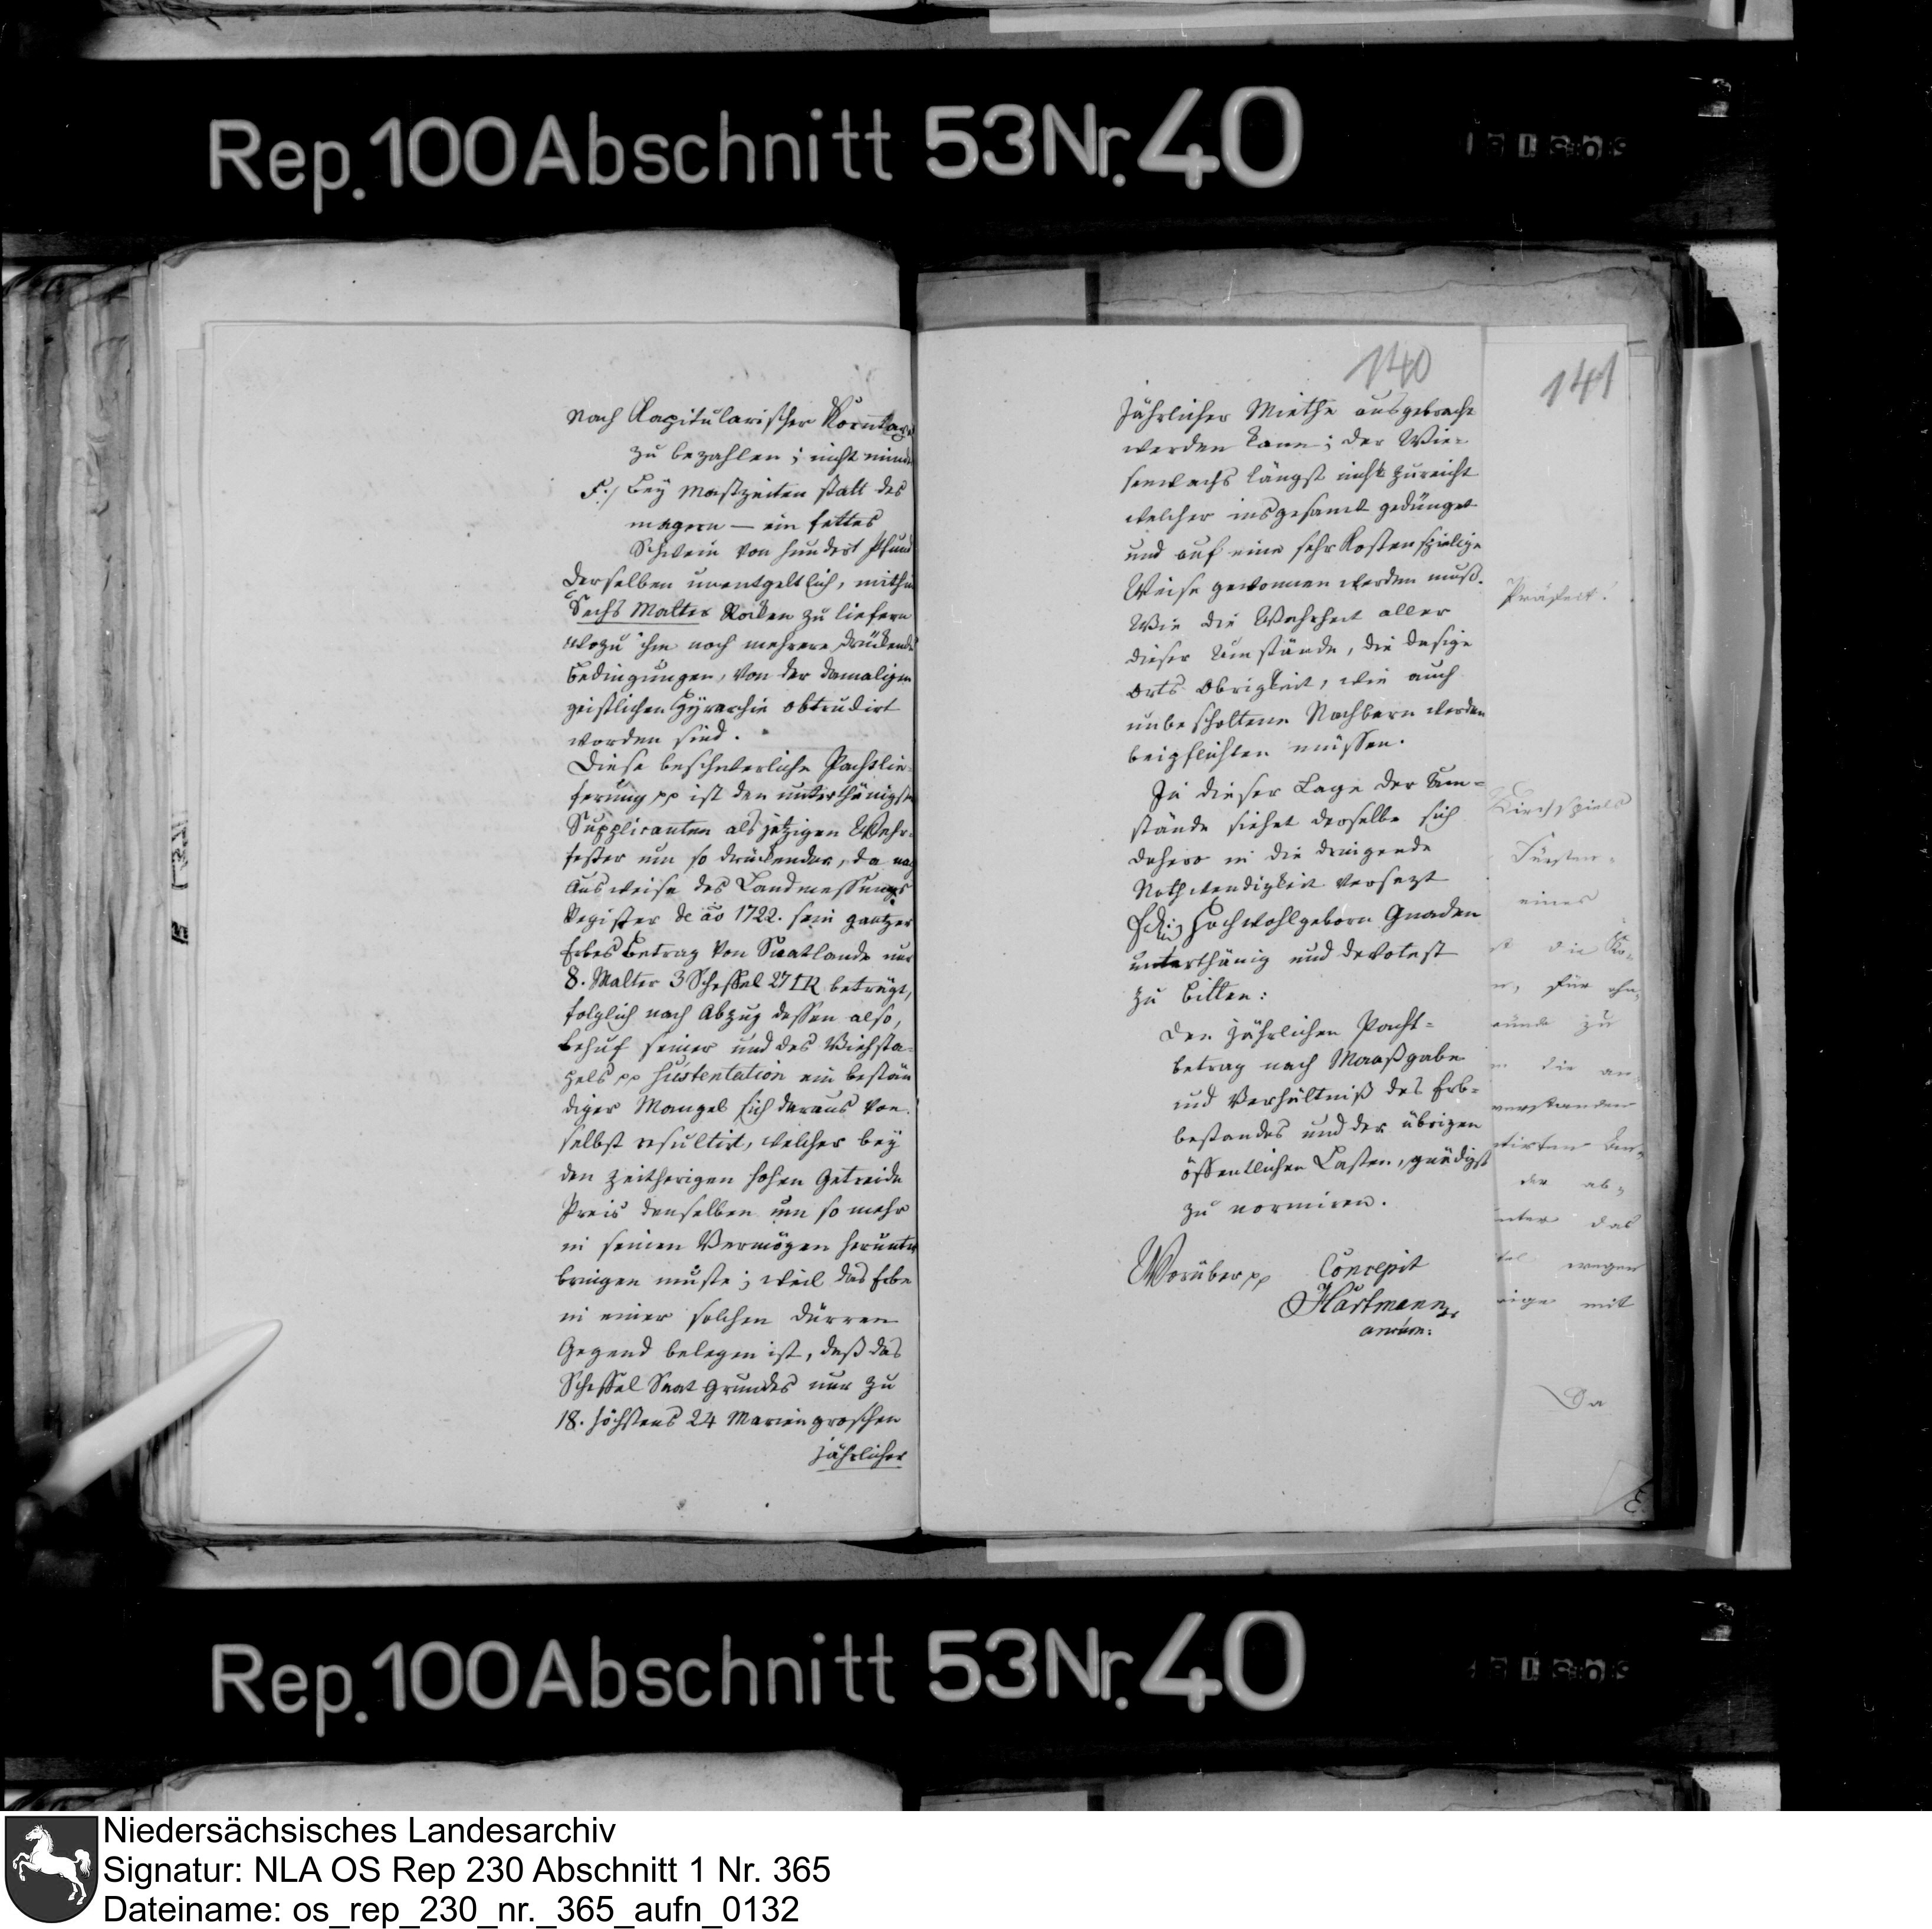 Rep. 100 Abschnitt 53 Nr. 40
nach Kapitularischer Korntaxe
zu bezahlen; nicht minder
F./ Bey Mastzeiten statt des
magern — ein fettes
Schwein von hundert Pfund
derselben unentgeltlich, mithin
Sechs Malter Rocken zu liefern
wozu ihm noch mehrere drückende
Bedingungen, von der damaligen
geistlichen Hyrarchie obtrudirt
worden sind.
Diese beschwerliche Pachtlie-
ferung pp ist den unterthänigsten
Supplicanten als jetzigen Wehr-
fester um so drückender, da nach
Ausweise des Landmessungs
Register de ao 1722. sein gantzer
Erbes Betrag von Saatlande nur
8. Malter 3 Scheffel 27 R beträgt,
folglich nach Abzug dessen also,
behuf seiner und des Viehsta-
pels pp sustentation ein bestän
diger Mangel sich daraus von
selbst resultirt, welcher bey
den zeitherigen hohen Getreide
Preis denselben um so mehr
in seinen Vermögen herunter
bringen müste; weil das Erbe
in einer solchen dürren
Gegend belegen ist, daß das
Scheffel Saat Grundes nur zu
18. höchstens 24 Mariengroschen
jährlicher
140
jährlicher Miethe ausgebracht
werden kann; der Wie-
senwachs längst nicht zureicht
welcher insgesamt gedünget
und auf eine sehr kostenspielige
Weise gewonnen werden muß.
Wie die Wahrheit aller
dieser Umstände, die dasige
Orts Obrigkeit, wie auch
unbescholtene Nachbarn werden
beipflichten müssen.
In dieser Lage der Um-
stände siehet derselbe sich
dahero in die dringende
Nothwendigkeit versezt
Hochwohlgeborn Gnaden
unterthänig und devotest
zu bitten:
den jährlichen Pacht-
betrag nach Maaßgabe
und Verhältniß des Erb-
bestandes und der übrigen
öffentlichen Lasten, gnädigst
zu normiren.
Worüber pp
Concepit
Hartmann
141
Kirchspiels
Fürsten-
eines
die
für
zu
die an
verstanden
der ab-
unter das
wegen
mit
Da
Rep. 100 Abschnitt 53 Nr. 40
Niedersächsisches Landesarchiv
Signatur: NLA OS Rep 230 Abschnitt 1 Nr. 365
Dateiname: os_rep_230_nr._365_aufn_0132